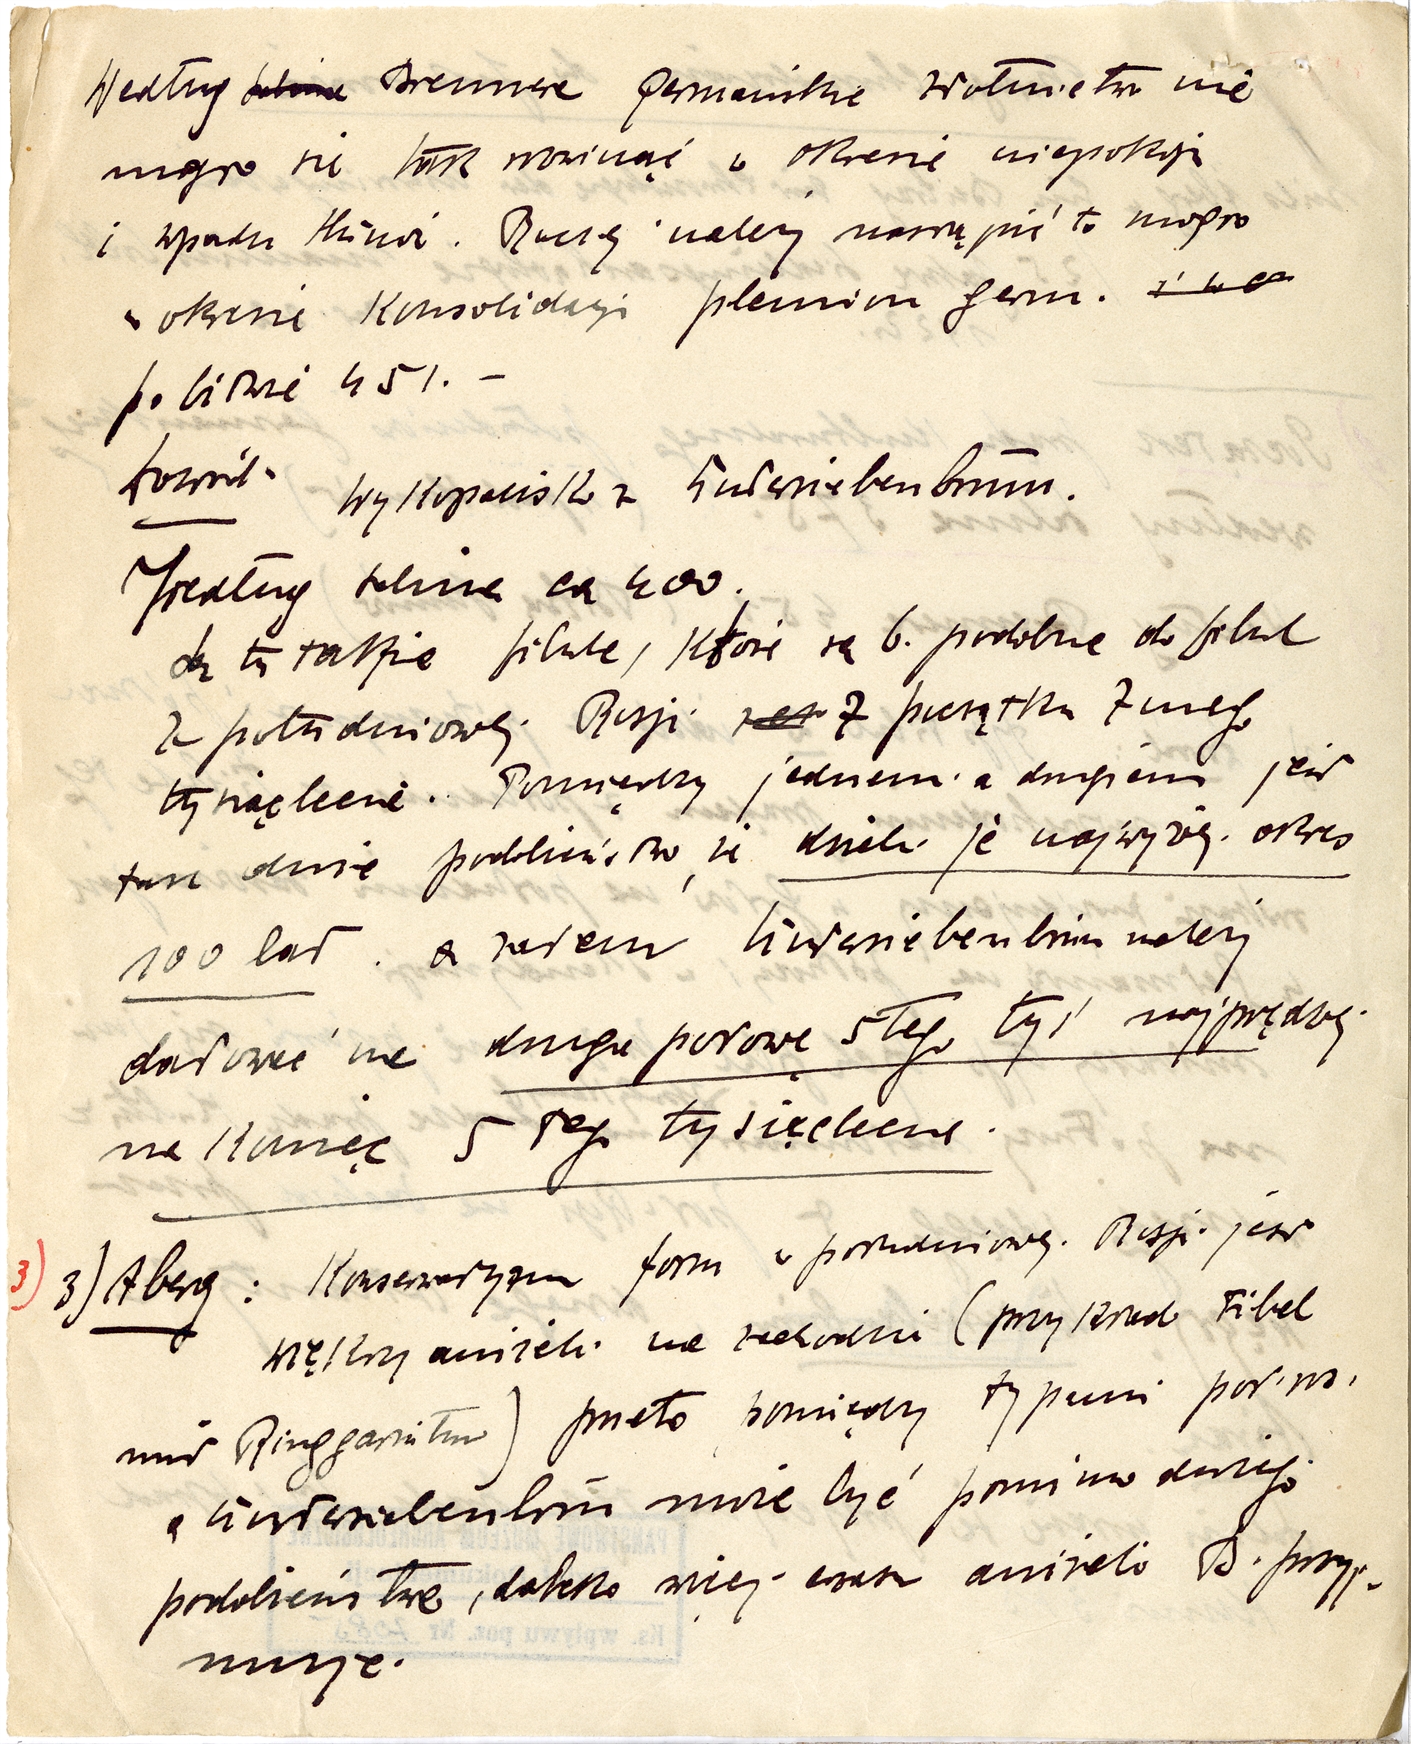 Według ~~Salina~~ Brennera germańskie złotnictwo nie
mogło się tak rozwinąć w okresie niepokoju
i wpadu Hunów. Raczej należy nastąpić to mogło
w okresie Konsolidacji plemion germ.
po bitwie 451. –
Dowód: Wykopalisko z Untersiebenbrunn.
Według Salina ca 400.
Są tu takie fibule, które są b. podobne do fibul
z południowej Rosji z początku 7 mego
tysiąclecia. Pomiędzy jednem a drugiem jest
tak duże podobieństwo, że dzieli je najwyżej okres
100 lat. a zatem Untersiebenbrun należy
datować na drugą połowę 5tego tyś najprędzej
na Koniec 5 tego tysiąclecia.
3) 3) Aberg: Konserwatyzm form w południowej Rosji jest
większy aniżeli na zachodzie (przykład Fibel
mit Ringgarnitur) przeto pomiędzy typami poł. ros.
a Untersiebenbrün może być pomimo dużego
podobieństwa, daleko więcej czasu aniżeli B. przyj-
muje.